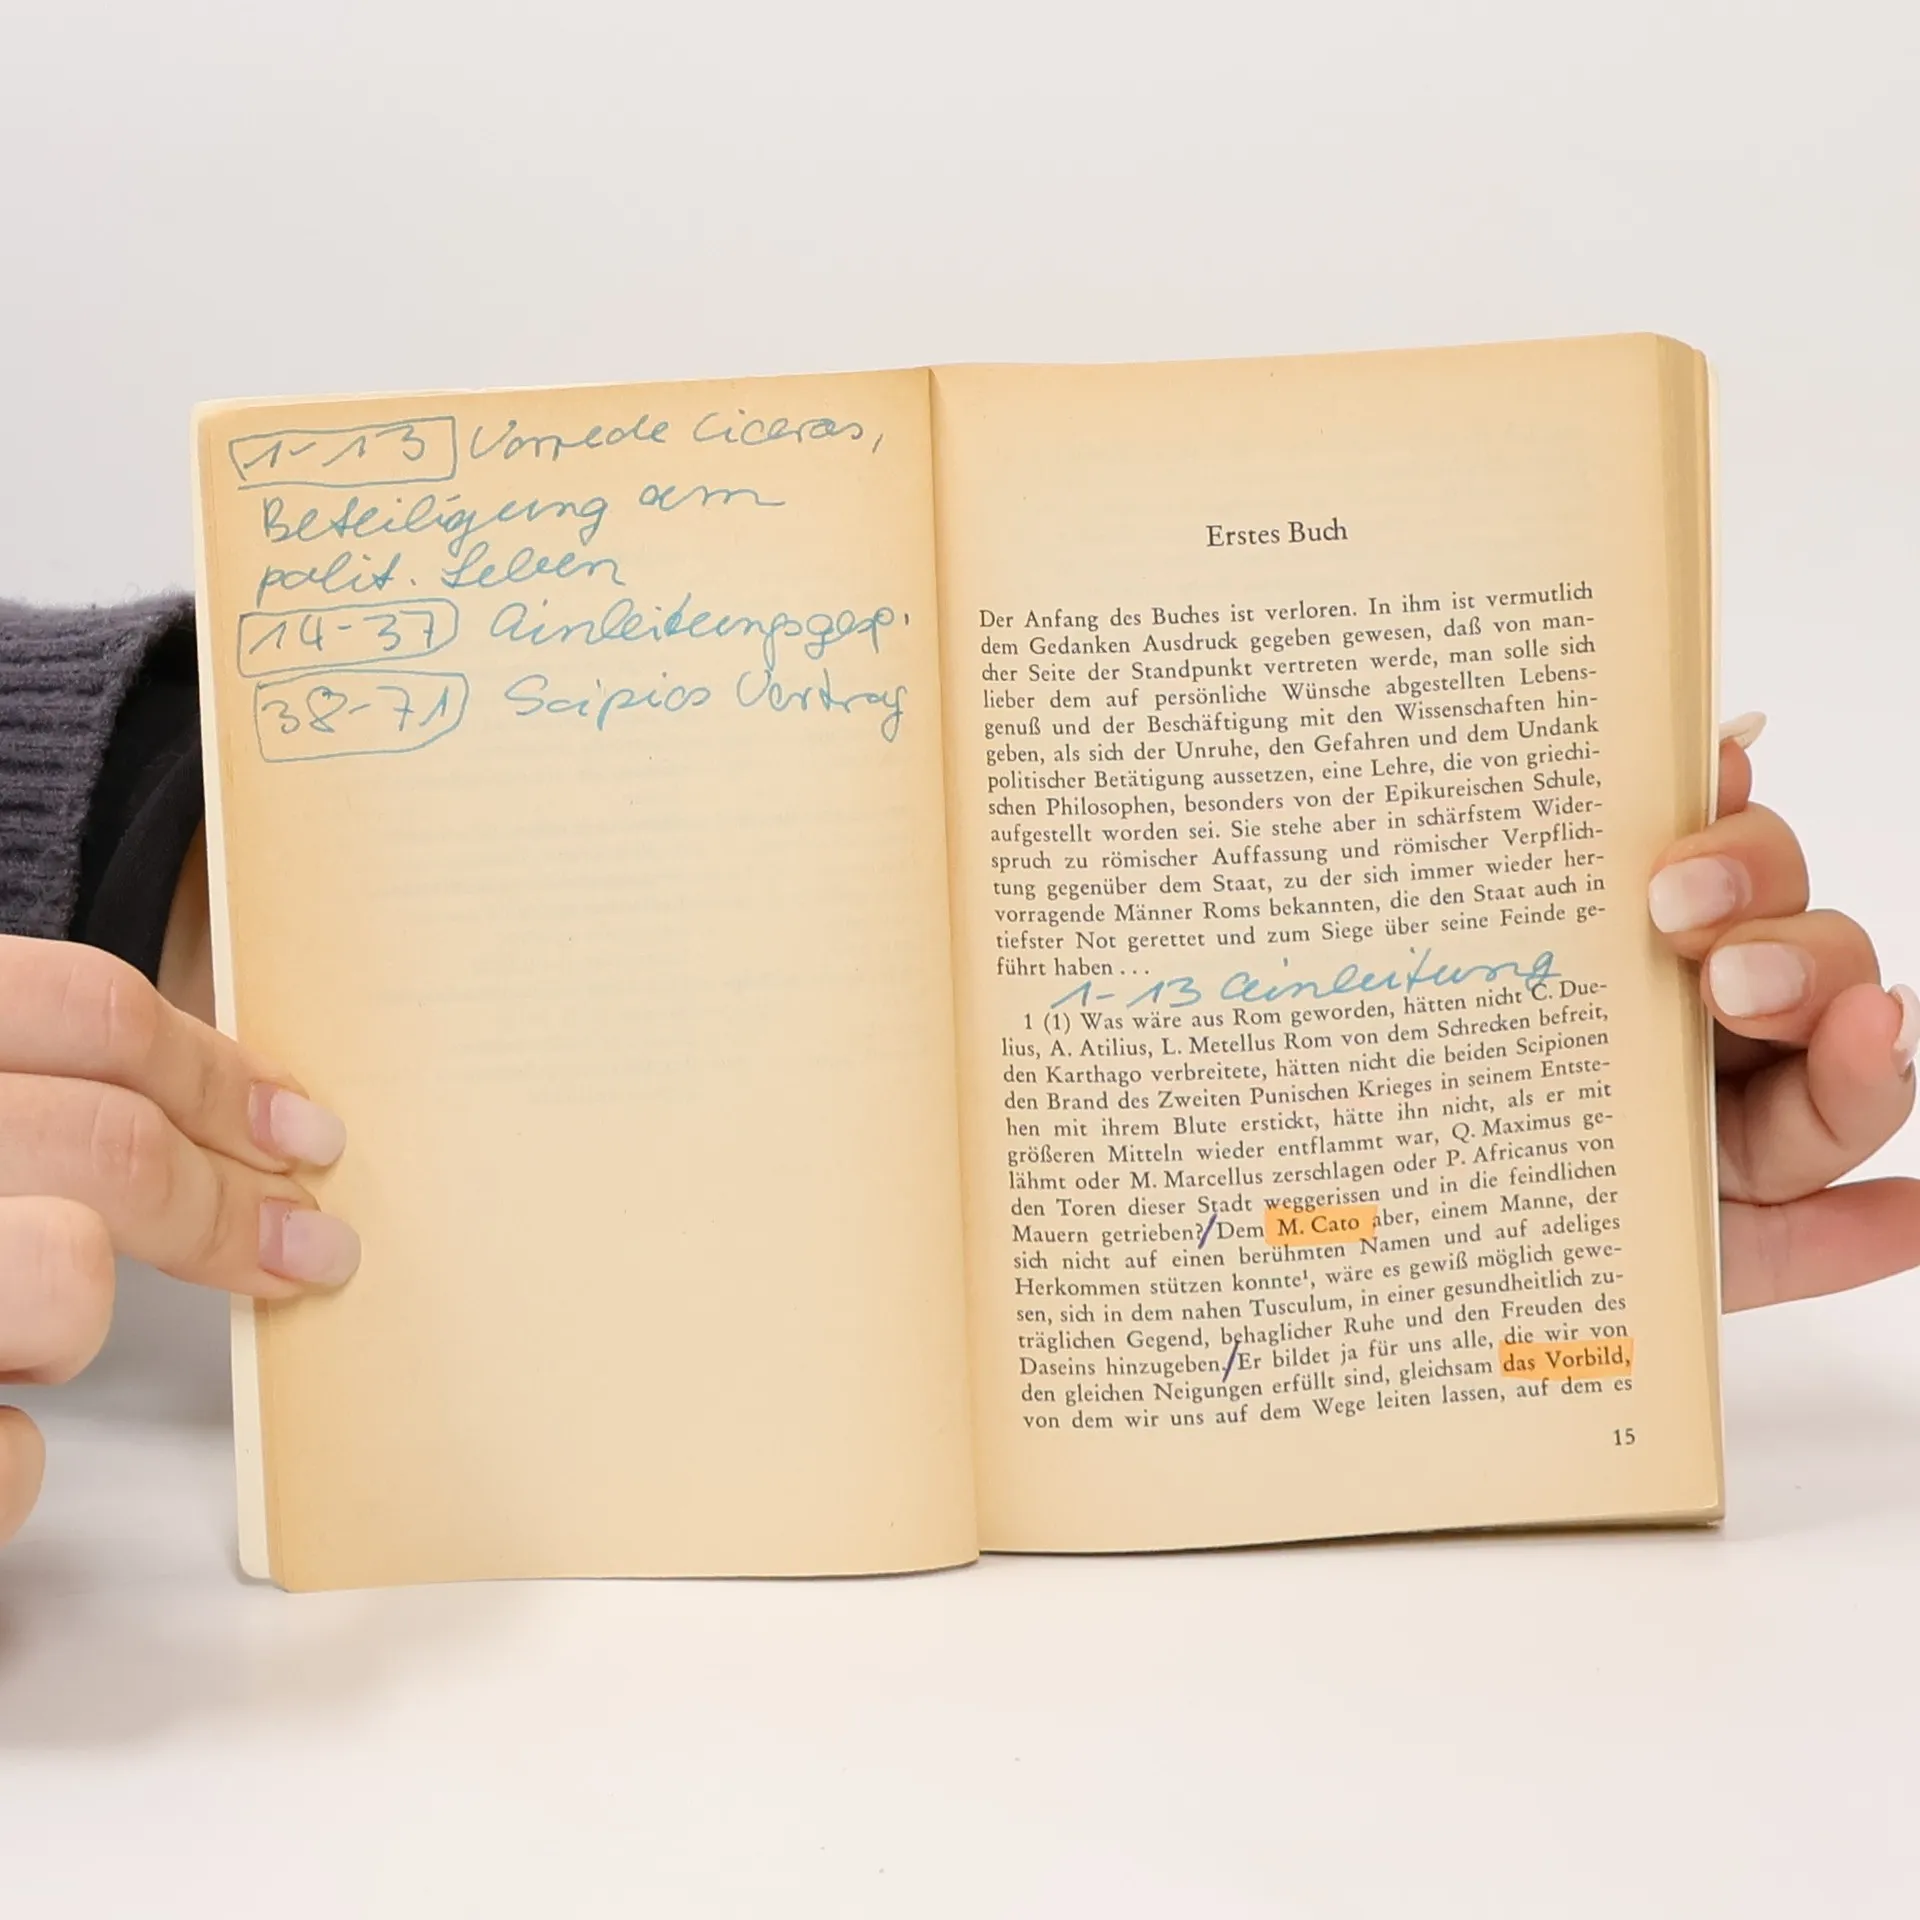 1-13 Vorrede Ciceros,
Beteiligung am
polit. Leben
14-37 Einleitungsgesp.
38-71 Scipios Vortrag
Erstes Buch
Der Anfang des Buches ist verloren. In ihm ist vermutlich
dem Gedanken Ausdruck gegeben gewesen, daß von man-
cher Seite der Standpunkt vertreten werde, man solle sich
lieber dem auf persönliche Wünsche abgestellten Lebens-
genuß und der Beschäftigung mit den Wissenschaften hin-
geben, als sich der Unruhe, den Gefahren und dem Undank
politischer Betätigung aussetzen, eine Lehre, die von griechi-
schen Philosophen, besonders von der Epikureischen Schule,
aufgestellt worden sei. Sie stehe aber in schärfstem Wider-
spruch zu römischer Auffassung und römischer Verpflich-
tung gegenüber dem Staat, zu der sich immer wieder her-
vorragende Männer Roms bekannten, die den Staat auch in
tiefster Not gerettet und zum Siege über seine Feinde ge-
führt haben ...
1-13 Einleitung
1 (1) Was wäre aus Rom geworden, hätten nicht C. Due-
lius, A. Atilius, L. Metellus Rom von dem Schrecken befreit,
den Karthago verbreitete, hätten nicht die beiden Scipionen
den Brand des Zweiten Punischen Krieges in seinem Entste-
hen mit ihrem Blute erstickt, hätte ihn nicht, als er mit
größeren Mitteln wieder entflammt war, Q. Maximus ge-
lähmt oder M. Marcellus zerschlagen oder P. Africanus von
den Toren dieser Stadt weggerissen und in die feindlichen
Mauern getrieben?/Dem M. Cato aber, einem Manne, der
sich nicht auf einen berühmten Namen und auf adeliges
Herkommen stützen konnte¹, wäre es gewiß möglich gewe-
sen, sich in dem nahen Tusculum, in einer gesundheitlich zu-
träglichen Gegend, behaglicher Ruhe und den Freuden des
Daseins hinzugeben./Er bildet ja für uns alle, die wir von
den gleichen Neigungen erfüllt sind, gleichsam das Vorbild,
von dem wir uns auf dem Wege leiten lassen, auf dem es
15